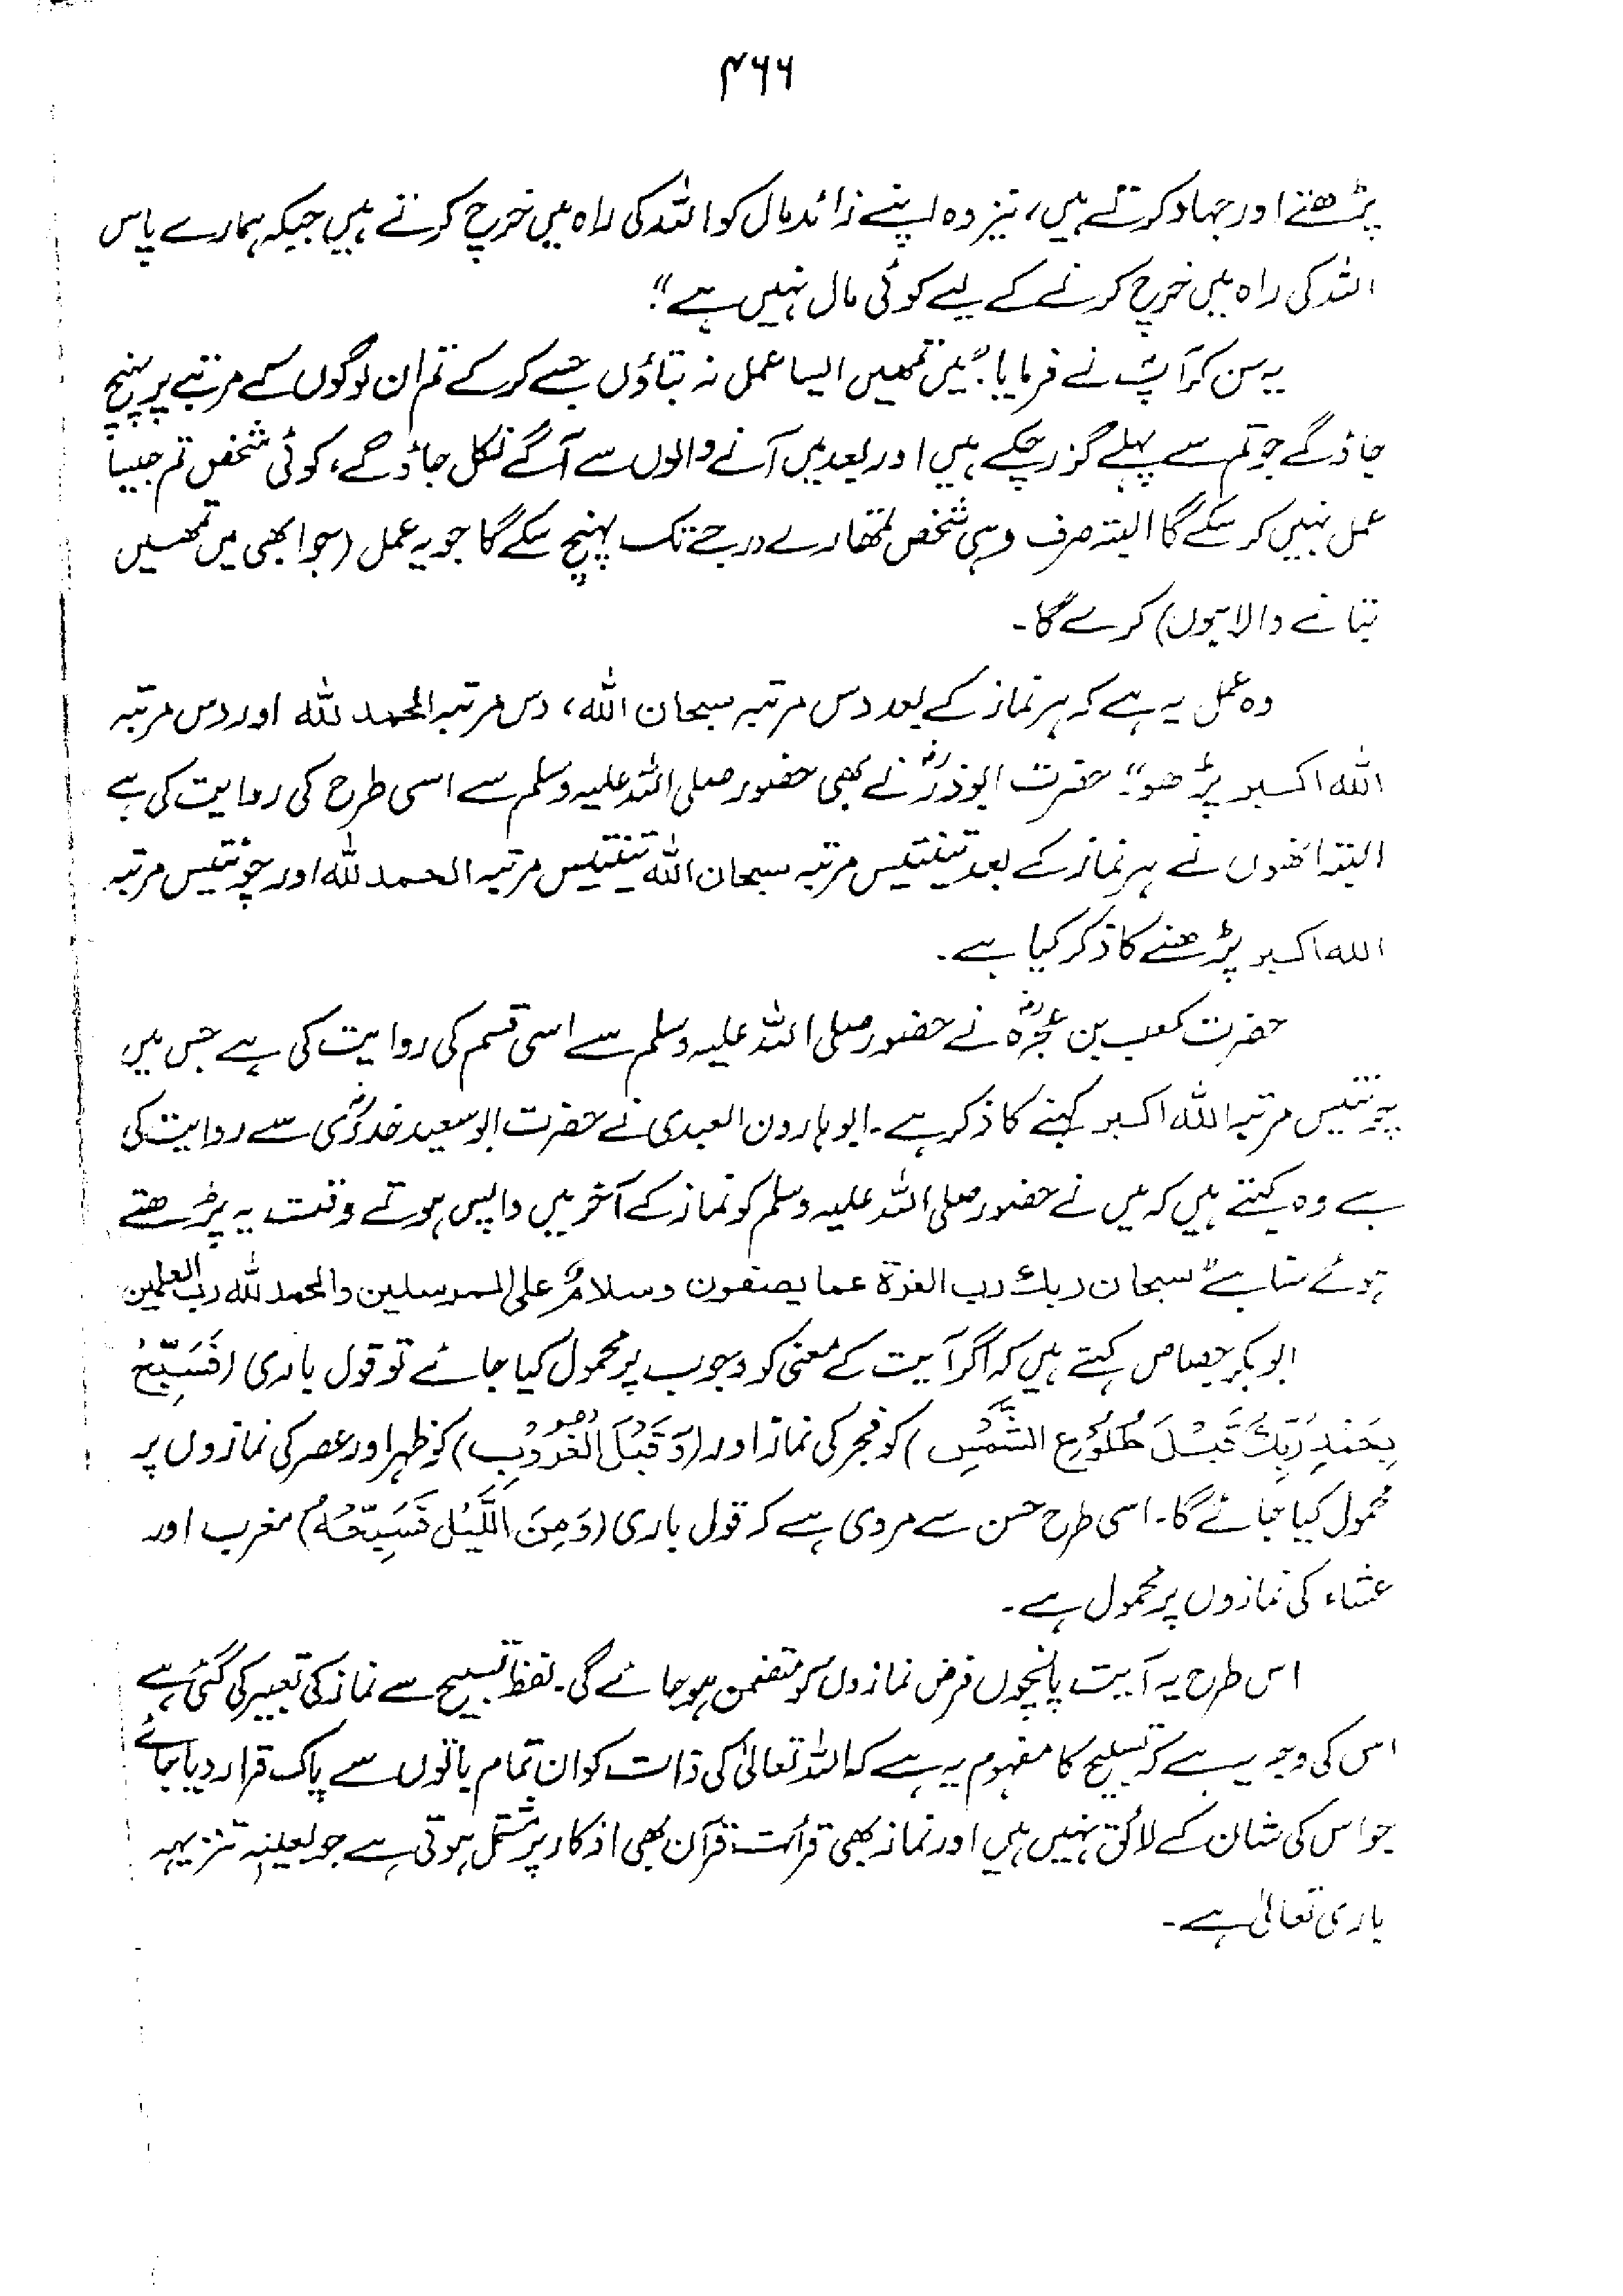 ۴۶۶
پڑھتے اور جہاد کرتے ہیں، نیز وہ اپنے زائد مال کو اللہ کی راہ میں خرچ کرتے ہیں جبکہ ہمارے پاس
اللہ کی راہ میں خرچ کرنے کے لیے کوئی مال نہیں ہے"۔
یہ سن کر آپؐ نے فرمایا: "میں تمہیں ایسا عمل نہ بتاؤں جسے کرکے تم ان لوگوں کے مرتبے پر پہنچ
جاؤ گے جو تم سے پہلے گزر چکے ہیں اور بعد میں آنے والوں سے آگے نکل جاؤ گے، کوئی شخص تم جیسا
عمل نہیں کر سکے گا البتہ صرف وہی شخص تمھارے درجے تک پہنچ سکے گا جو یہ عمل (جو ابھی میں تمہیں
بتانے والا ہوں) کرے گا۔
وہ عمل یہ ہے کہ ہر نماز کے بعد دس مرتبہ سبحان اللہ، دس مرتبہ الحمد للہ اور دس مرتبہ
اللہ اکبر پڑھو"۔ حضرت ابوذرؓ نے بھی حضور صلی اللہ علیہ وسلم سے اسی طرح کی روایت کی ہے
البتہ انھوں نے ہر نماز کے بعد تینتیس مرتبہ سبحان اللہ تینتیس مرتبہ الحمد للہ اور چونتیس مرتبہ
اللہ اکبر پڑھنے کا ذکر کیا ہے۔
حضرت کعب بن عجرہؓ نے حضور صلی اللہ علیہ وسلم سے اسی قسم کی روایت کی ہے جس میں
چونتیس مرتبہ اللہ اکبر کہنے کا ذکر ہے۔ ابو ہارون العبدی نے حضرت ابو سعید خدریؓ سے روایت کی
ہے وہ کہتے ہیں کہ میں نے حضور صلی اللہ علیہ وسلم کو نماز کے آخر میں واپس ہوتے وقت یہ پڑھتے
ہوئے سنا ہے "سبحان ربك رب العزة عما يصفون وسلامٌ على المرسلين والحمد لله رب العلمين
ابو بکر جصاص کہتے ہیں کہ اگر آیت کے معنی کو وجوب پر محمول کیا جائے تو قول باری (فَسَبِّحْ
بِحَمْدِ رَبِّكَ قَبْلَ طُلُوْعِ الشَّمْسِ) کو فجر کی نماز اور (وَقَبْلَ الْغُرُوْبِ) کو ظہر اور عصر کی نمازوں پر
محمول کیا جائے گا۔ اسی طرح حسن سے مروی ہے کہ قول باری (وَمِنَ اللَّيْلِ فَسَبِّحْهُ) مغرب اور
عشاء کی نمازوں پر محمول ہے۔
اس طرح یہ آیت پانچوں فرض نمازوں کو متضمن ہو جائے گی۔ لفظ تسبیح سے نماز کی تعبیر کی گئی ہے
اس کی وجہ یہ ہے کہ تسبیح کا مفہوم یہ ہے کہ اللہ تعالیٰ کی ذات کو ان تمام باتوں سے پاک قرار دیا جائے
جو اس کی شان کے لائق نہیں ہیں اور نماز بھی قرأت قرآن بھی اذکار پر مشتمل ہوتی ہے جو بعینہٖ تنزیہہ
باری تعالیٰ ہے۔